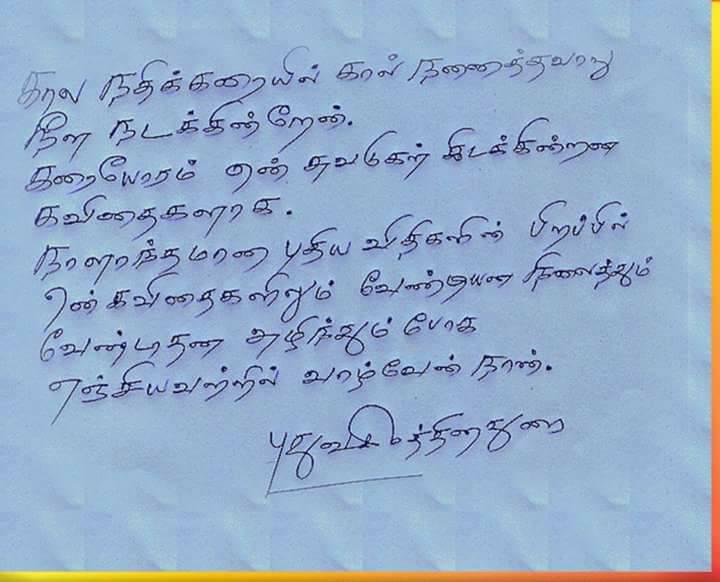 கால நதிக்கரையில் கால் நனைத்தவாறு
நீள நடக்கின்றேன்.
கரையோரம் என் சுவடுகள் கிடக்கின்றன
கவிதைகளாக.
நாளாந்தமான புதிய விதிகளின் பிறப்பில்
என் கவிதைகளிலும் வேண்டியன நிலைத்தும்
வேண்டாதன அழிந்தும் போக
எஞ்சியவற்றில் வாழ்வேன் நான்.
புதுவை இரத்தினதுரை